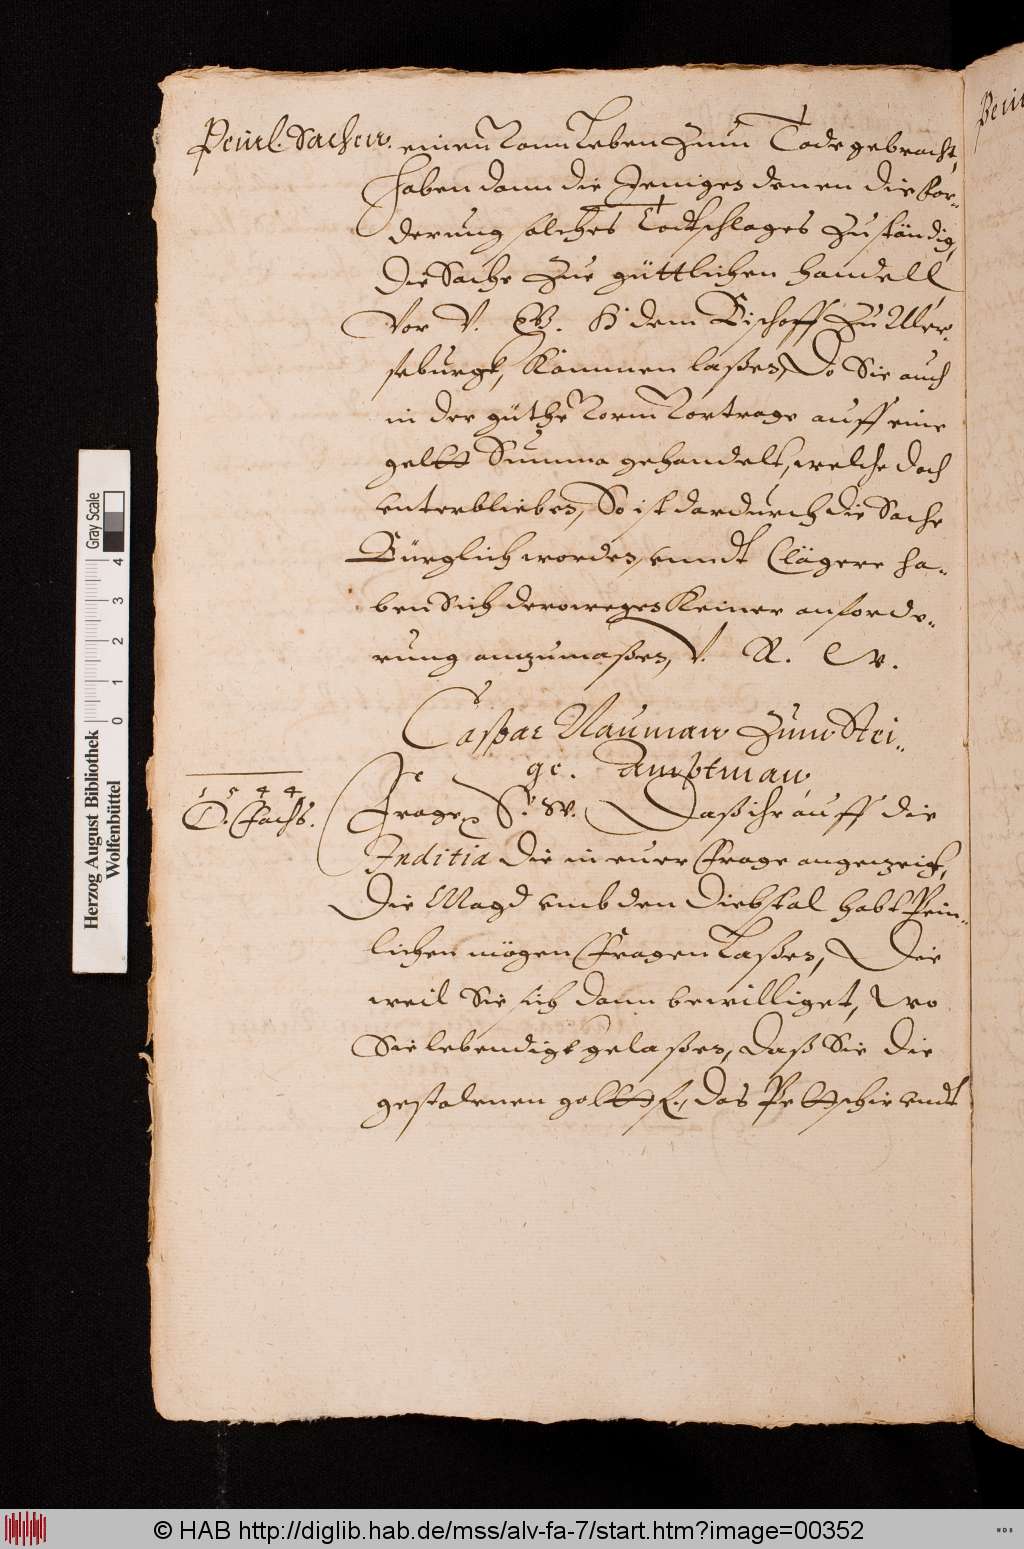 Peinl. Sachen.
einen vom Leben zum Tode gebracht,
haben dann die Jenigen denen die for-
derung solches Todtschlages zuständig,
die Sache zue güttlichen handell
vor V. G. H dem Bischoff zu Mer-
seburgk, kommen laßen, Do Sie auch
in der güthe vorm Vortrage auff eine
geltt Summa gehandelt, welche doch
unterblieben, So ist dardurch die Sache
Bürglich worden, unndt Clägere ha-
ben Sich deroweges keiner anforde-
rung anzumaßen, V. R. W.
Caspar Nauman zum Stei-
ge. Amptman
1544
D. Fachs.
Frage S. W. Daß ihr auff die
Inditia die in euer Frage angezeigt,
Die Magd umb den Diebstal habt Pein-
lichen mögen Fragen Laßen, Die
weil Sie sich dann bewilliget, wo
Sie lebendigk gelaßen, daß Sie die
gestolenen goltt f., das Petschir undt
Herzog August Bibliothek
Wolfenbüttel
0 1 2 3 4
Gray Scale
© HAB http://diglib.hab.de/mss/alv-fa-7/start.htm?image=00352